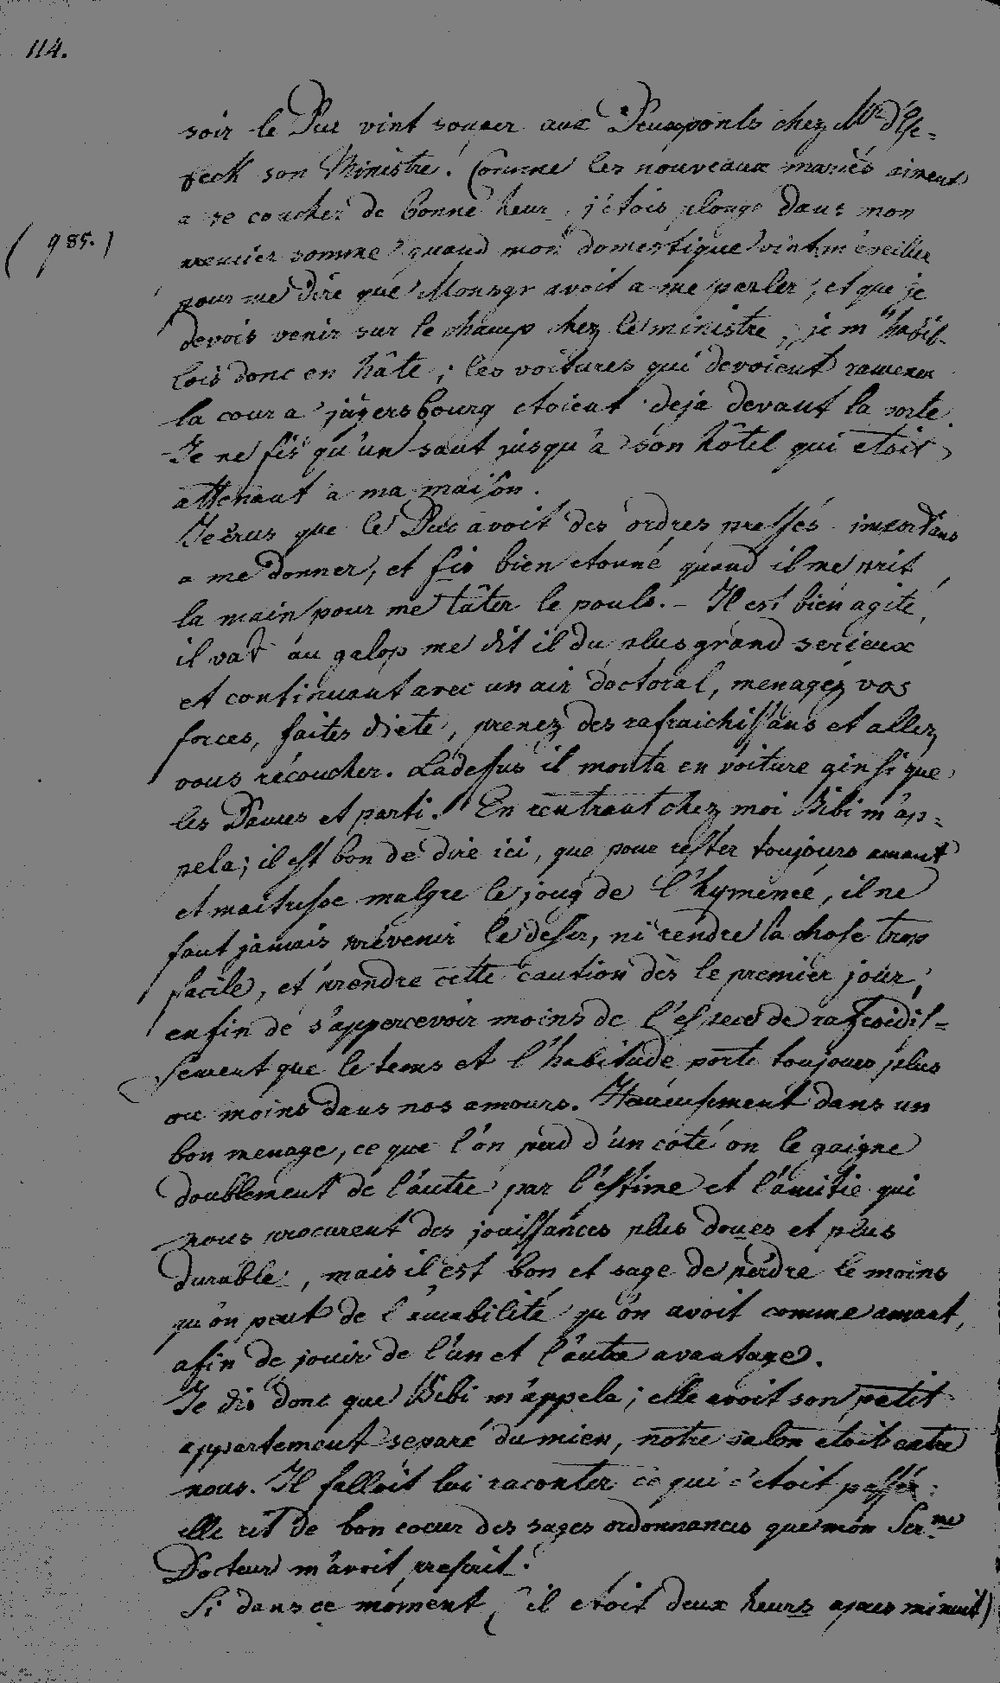 114.
soir le Duc vint souper aux Deuxponts chez Mr. d'Ese=
beck son Ministre. Comme les nouveaux mariés aiment
a se coucher de bonne heur, j'etois plongé dans mon
(985.)
premier somme quand mon domestique vint m'éveiller
pour me dire que Monsgr avoit a me parler, et que je
devois venir sur le champ chez le ministre, je m'habil-
lois donc en hâte; les voitures qui devoient ramener
la cour a jägersbourg etoient deja devant la porte.
Je ne fis qu'un saut jusqu'à son hôtel qui etoit
attenant a ma maison.
Je crus que le Duc avoit des ordres pressés importans
a me donner, et fis bien etonné quand il me prit
la main pour me tâter le pouls. – Il est bien agité,
il vat au galop me dit il du plus grand serieux
et continuant avec un air doctoral, menagez vos
forces, faites diete, prenez des rafraichissans et allez
vous récoucher. Ladessus il monta en voiture ainsi que
les Dames et parti. En rentrant chez moi Bibi m'ap=
pela; il est bon de dire ici, que pour rester toujours amant
et maitresse malgre le joug de l'hymenée, il ne
faut jamais prévenir le desir, ni rendre la chose trop
facile, et prendre cette caution dès le premier jour,
enfin de s'appercevoir moins de l'espece de raffroidis=
sement que le tems et l'habitude porte toujours plus
ou moins dans nos amours. Heureusement dans un
bon menage, ce que l'on perd d'un coté on le gaigne
doublement de l'autre par l'estime et l'amitie qui
nous procurent des jouissances plus doues et plus
durable, mais il est bon et sage de perdre le moins
qu'on peut de l'amabilité qu'on avoit comme amant,
afin de jouir de l'un et l'autre avantage.
Je dis donc que Bibi m'appela; elle avoit son petit
appartement separé du mien, notre salon etoit entre
nous. Il falloit lui raconter ce qui s'etoit passé:
elle rit de bon coeur des sages ordonnances que mon Ser.me
Docteur m'avoit prescrit.
Si dans ce moment, (il etoit deux heurs apres minuit)